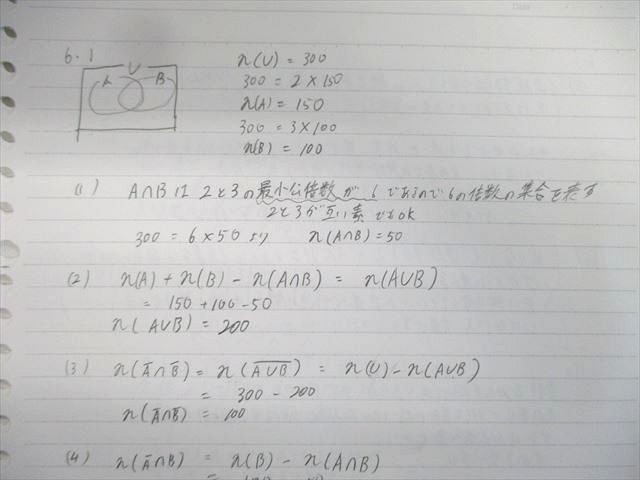 6.1
U
A B
n(U) = 300
300 = 2 × 150
n(A) = 150
300 = 3 × 100
n(B) = 100
(1) A∩B は 2と3の最小公倍数が 6 であるので 6の倍数の集合を表す
2と3が互い素でもok
300 = 6×50 より n(A∩B) = 50
(2) n(A) + n(B) - n(A∩B) = n(A∪B)
= 150 + 100 - 50
n(A∪B) = 200
(3) n(A̅∩B̅) = n(A̅∪̅B̅) = n(U) - n(A∪B)
= 300 - 200
n(A̅∩B̅) = 100
(4) n(A̅∩B) = n(B) - n(A∩B)